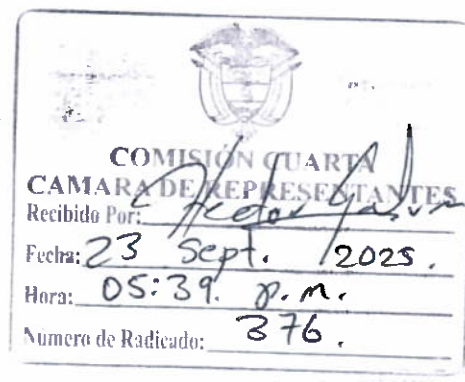 COMISIÓN CUARTA
CAMARA DE REPRESENTANTES
Recibido Por: Hector
Fecha: 23 Sept. 2025.
Hora: 05:39. p.m.
Número de Radicado: 376.